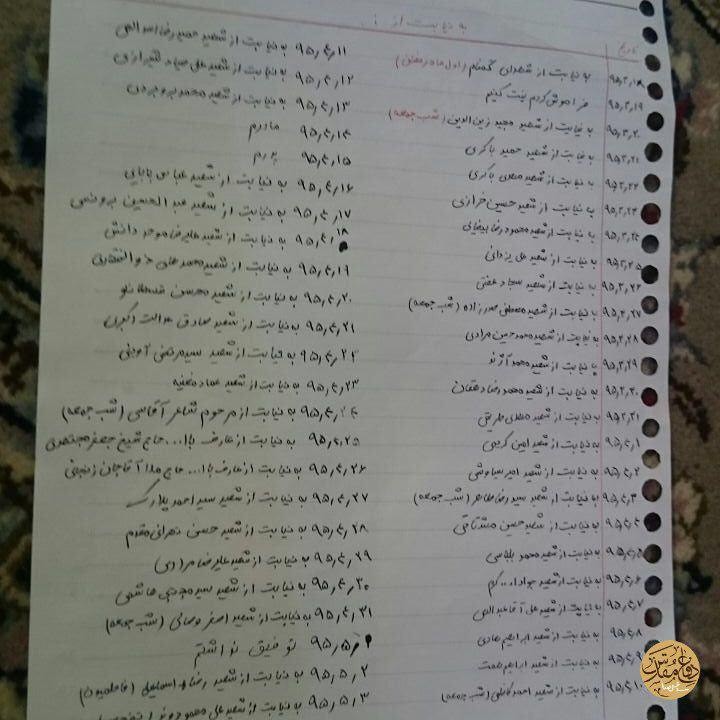 به نیابت از :
تاریخ
۹۵,۳,۱۸ به نیابت از شهدای گمنام (اول ماه رمضان)
۹۵,۳,۱۹ فراموش کردم نیت کنم
۹۵,۳,۲۰ به نیابت از شهید مجید زین الدین (شب جمعه)
۹۵,۳,۲۱ به نیابت از شهید حمید باکری
۹۵,۳,۲۲ به نیابت از شهید مهدی باکری
۹۵,۳,۲۳ به نیابت از شهید حسین خرازی
۹۵,۳,۲۴ به نیابت از شهید محمود رضا بیضایی
۹۵,۳,۲۵ به نیابت از شهید علی یزدانی
۹۵,۳,۲۶ به نیابت از شهید سجاد عفتی
۹۵,۳,۲۷ به نیابت از شهید مصطفی صدرزاده (شب جمعه)
۹۵,۳,۲۸ به نیابت از شهید محمد حسین مرادی
۹۵,۳,۲۹ به نیابت از شهید محمد آژند
۹۵,۳,۳۰ به نیابت از شهید محمد رضا دهقان
۹۵,۳,۳۱ به نیابت از شهید مهدی
۹۵,۴,۱ به نیابت از شهید امین کریمی
۹۵,۴,۲ به نیابت از شهید امیر سیاوشی
۹۵,۴,۳ به نیابت از شهید سید رضا طاهر (شب جمعه)
۹۵,۴,۴ به نیابت از شهید حسین مشتاقی
۹۵,۴,۵ به نیابت از شهید محمد بلباسی
۹۵,۴,۶ به نیابت از شهید جواد ا... کرم
۹۵,۴,۷ به نیابت از شهید علی آقاعبدالهی
۹۵,۴,۸ به نیابت از شهید ابراهیم هادی
۹۵,۴,۹ به نیابت از شهید ابراهیم همت
۹۵,۴,۱۰ به نیابت از شهید احمد کاظمی (شب جمعه)
۹۵,۴,۱۱ به نیابت از شهید حمید رضا اسدالهی
۹۵,۴,۱۲ به نیابت از شهید علی صیاد شیرازی
۹۵,۴,۱۳ به نیابت از شهید محمد بروجردی
۹۵,۴,۱۴ مادرم
۹۵,۴,۱۵ پدرم
۹۵,۴,۱۶ به نیابت از شهید عباس بابایی
۹۵,۴,۱۷ به نیابت از شهید عبدالحسین برونسی
۹۵,۴,۱۸ به نیابت از شهید علیرضا موحد دانش
۹۵,۴,۱۹ به نیابت از شهید محمد علی
۹۵,۴,۲۰ به نیابت از شهید محسن
۹۵,۴,۲۱ به نیابت از شهید صادق عدالت اکبری
۹۵,۴,۲۲ به نیابت از شهید سید مرتضی آوینی
۹۵,۴,۲۳ به نیابت از شهید عماد مغنیه
۹۵,۴,۲۴ به نیابت از مرحوم شاعر آقاسی (شب جمعه)
۹۵,۴,۲۵ به نیابت از عارف با ا... حاج شیخ جعفر مجتهدی
۹۵,۴,۲۶ به نیابت از عارف با ا... حاج ملا آقاجان زنجانی
۹۵,۴,۲۷ به نیابت از شهید سید احمد پلارک
۹۵,۴,۲۸ به نیابت از شهید حسن تهرانی مقدم
۹۵,۴,۲۹ به نیابت از شهید علیرضا مرادی
۹۵,۴,۳۰ به نیابت از شهید سید مجتبی هاشمی
۹۵,۴,۳۱ به نیابت از شهید اصغر وصالی (شب جمعه)
۹۵,۵,۱ توفیق نداشتم
۹۵,۵,۲ به نیابت از شهید رضا اسماعیلی (فاطمیون)
۹۵,۵,۳ به نیابت از شهید علی محمودوند
دفاع مقدس